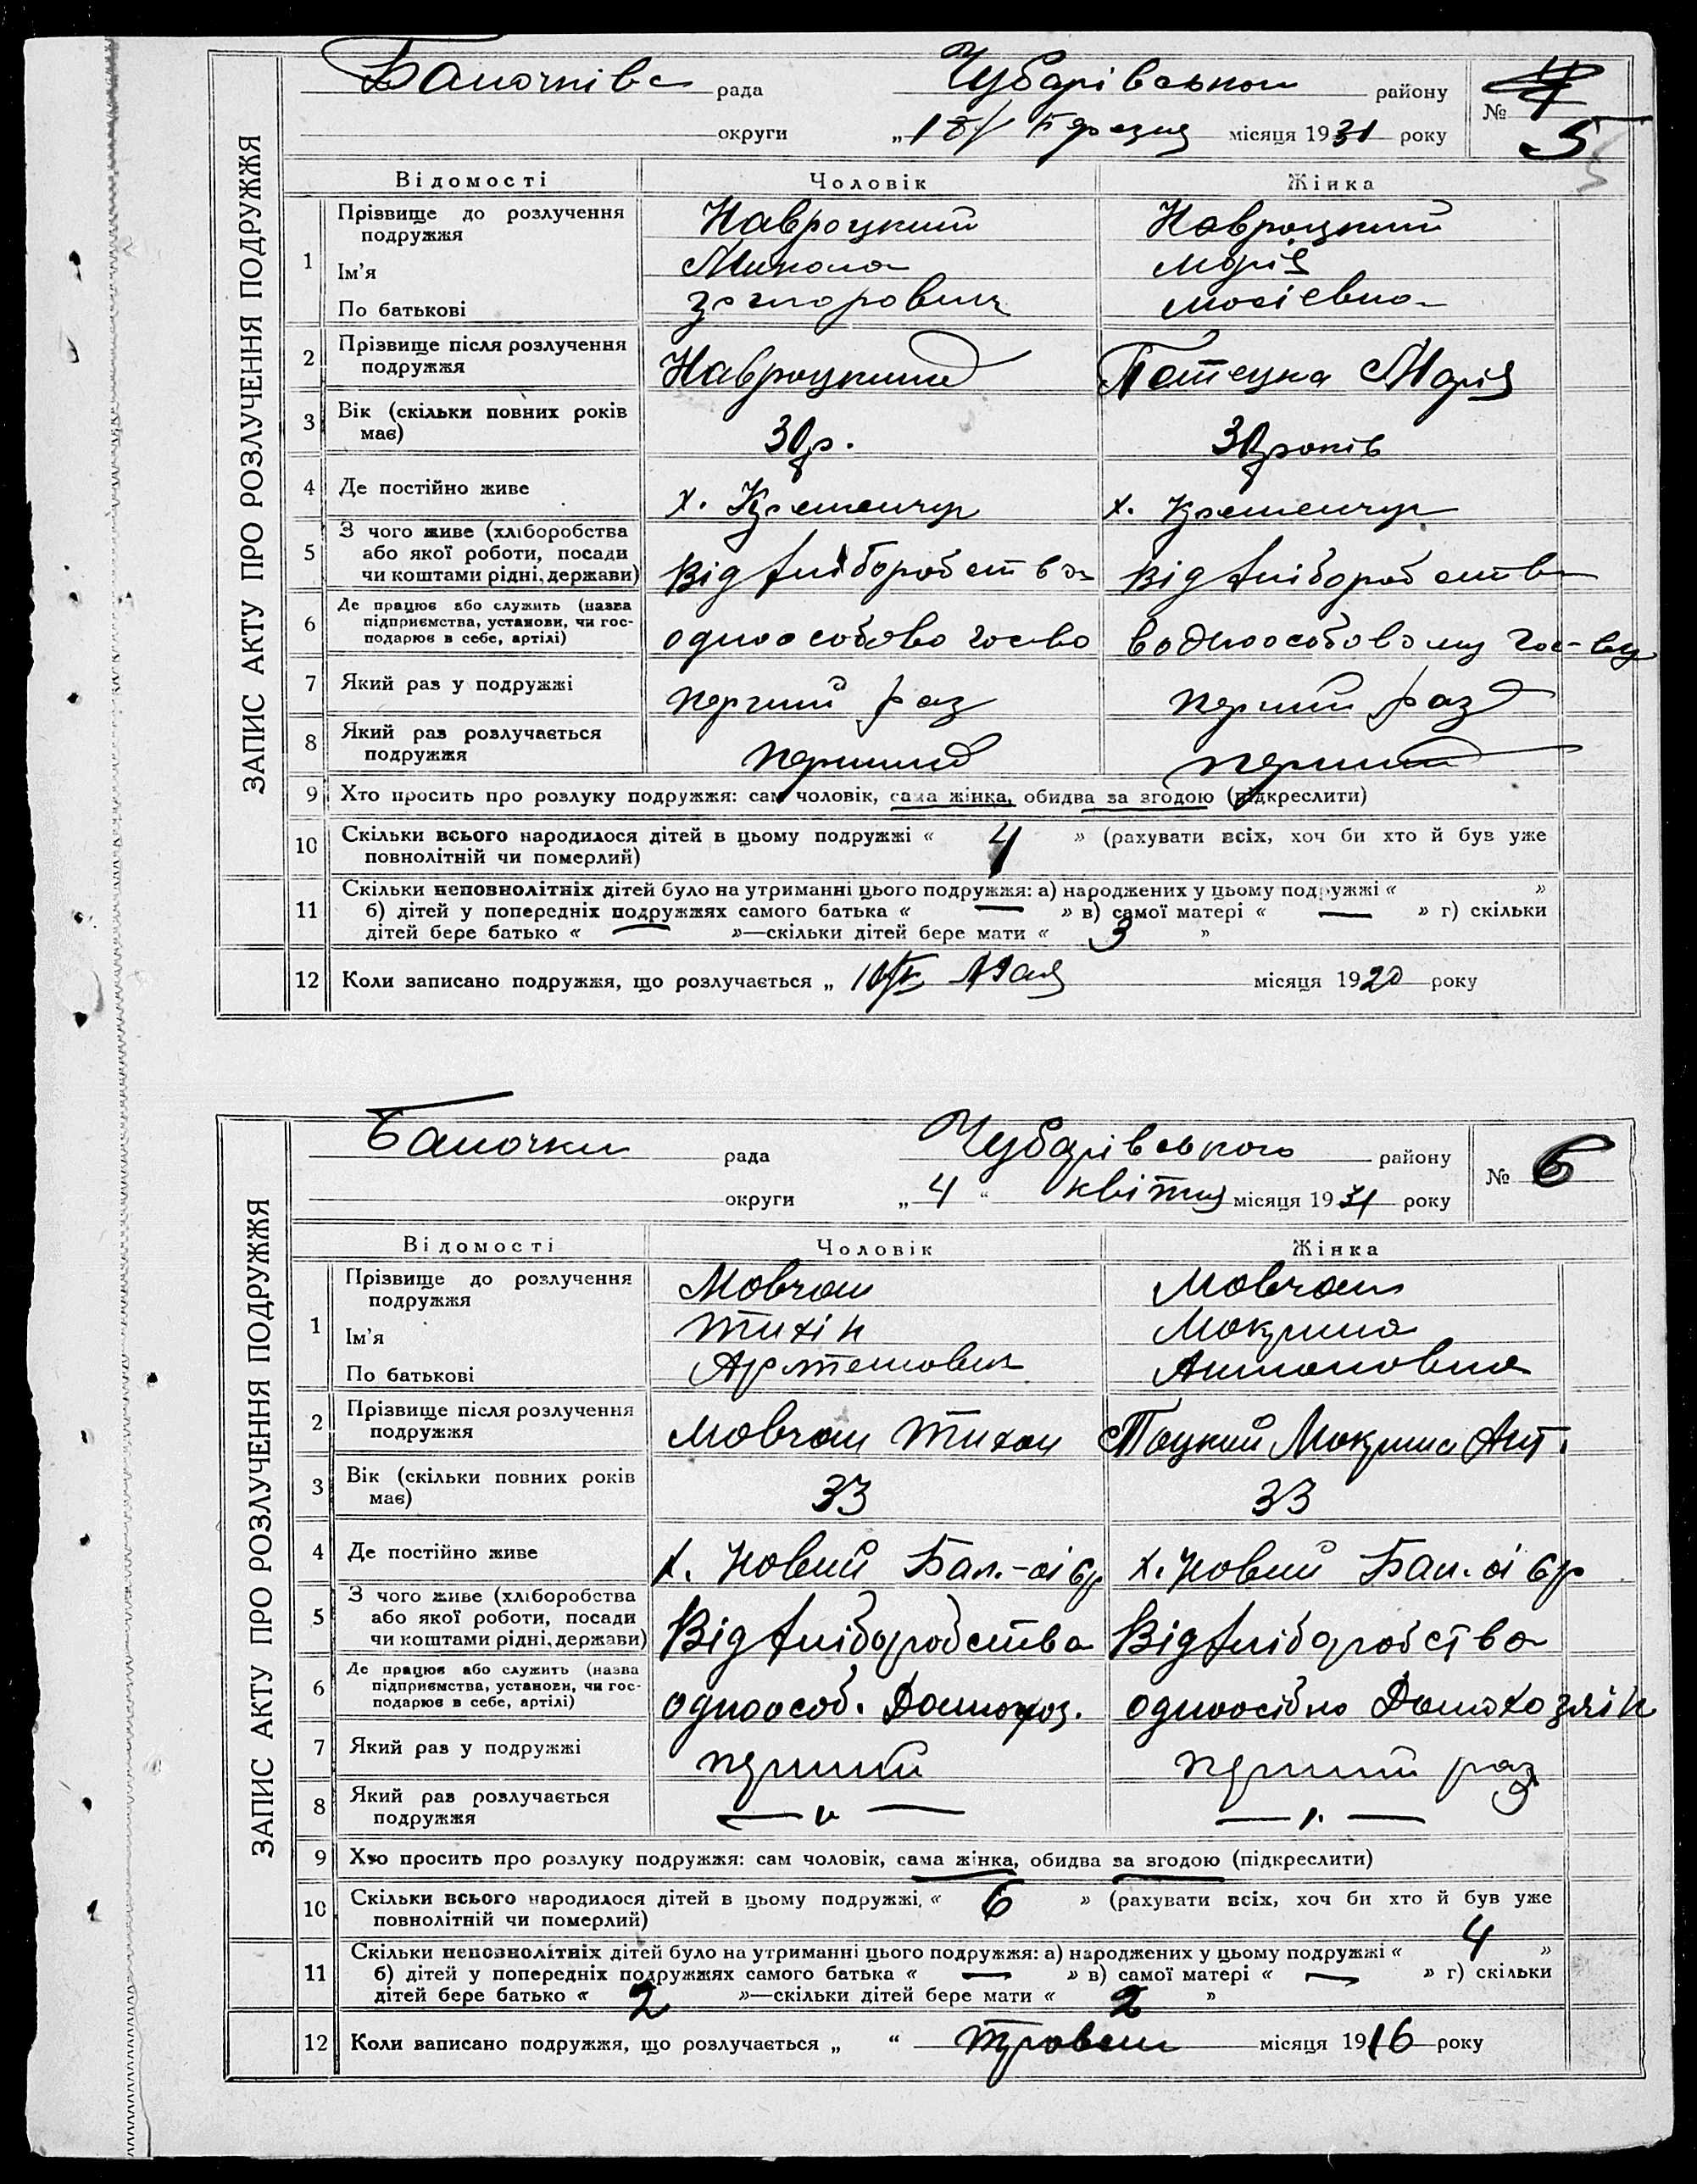 ЗАПИС АКТУ ПРО РОЗЛУЧЕННЯ ПОДРУЖЖЯ
рада Чубарівського району
№ 5
округи „18" Березня місяця 1931 року
Відомості Чоловік Жінка
1 Прізвище до розлучення подружжя Навроцкий Навроцкий
Ім'я Микола Марія
По батькові Мосієвна
2 Прізвище після розлучення подружжя Навроцкий Марія
3 Вік (скільки повних років має) 30 р. 30 років
4 Де постійно живе х. Кременчук х. Кременчук
5 З чого живе (хліборобства або якої роботи, посади чи коштами рідні, держави) Від хліборобства Від хліборобства
6 Де працює або служить (назва підприємства, установи, чи господарює в себе, артілі) одноособово гос-во в одноособовому гос-ву
7 Який раз у подружжі перший раз перший раз
8 Який раз розлучається подружжя перший перший
9 Хто просить про розлуку подружжя: сам чоловік, сама жінка, обидва за згодою (підкреслити)
10 Скільки всього народилося дітей в цьому подружжі « 4 » (рахувати всіх, хоч би хто й був уже
повнолітній чи померлий)
11 Скільки неповнолітніх дітей було на утриманні цього подружжя: а) народжених у цьому подружжі « »
б) дітей у попередніх подружжях самого батька « — » в) самої матері « — » г) скільки
дітей бере батько « — »—скільки дітей бере мати « 3 »
12 Коли записано подружжя, що розлучається „ 10 Мая місяця 1920 року
ЗАПИС АКТУ ПРО РОЗЛУЧЕННЯ ПОДРУЖЖЯ
Балочки рада Чубарівського району
№ 6
округи „4" квітня місяця 1931 року
Відомості Чоловік Жінка
1 Прізвище до розлучення подружжя Мовчан Мовчан
Ім'я Тихін Мокрина
По батькові Артемович Антоновна
2 Прізвище після розлучення подружжя Мовчан Тихон Тоцкий Мокрина Ант.
3 Вік (скільки повних років має) 33 33
4 Де постійно живе х. Новий х. Новий
5 З чого живе (хліборобства або якої роботи, посади чи коштами рідні, держави) Від хліборобства Від хліборобства
6 Де працює або служить (назва підприємства, установи, чи господарює в себе, артілі) одноособ. Домохоз. одноосібно Домохозяїн
7 Який раз у подружжі перший перший раз
8 Який раз розлучається подружжя — „ — — „ —
9 Хто просить про розлуку подружжя: сам чоловік, сама жінка, обидва за згодою (підкреслити)
10 Скільки всього народилося дітей в цьому подружжі, « 6 » (рахувати всіх, хоч би хто й був уже
повнолітній чи померлий)
11 Скільки неповнолітніх дітей було на утриманні цього подружжя: а) народжених у цьому подружжі « 4 »
б) дітей у попередніх подружжях самого батька « — » в) самої матері « — » г) скільки
дітей бере батько « 2 »—скільки дітей бере мати « 2 »
12 Коли записано подружжя, що розлучається „ “ Травень місяця 1916 року